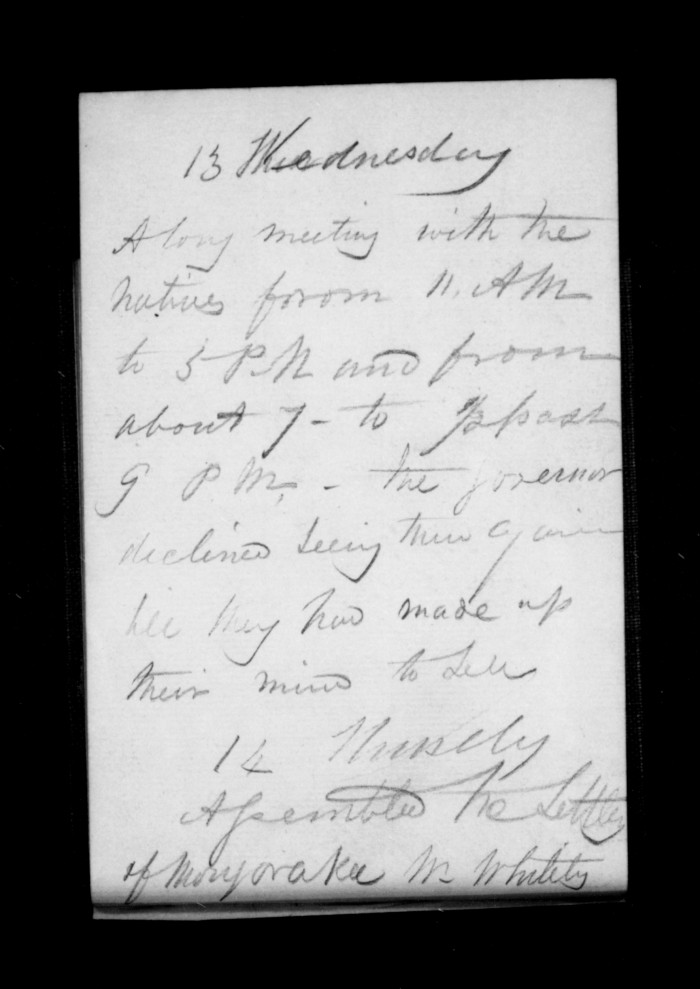 13 Wednesday
A long meeting with the
natives forom 11. AM
to 5 P.M and from
about 7 - to ½ past
9 P.M. - the Governor
declined seeing them again
till they had made up
their mind to sell
14 Thursdy
Assembled the Settlers
of Mongoraka